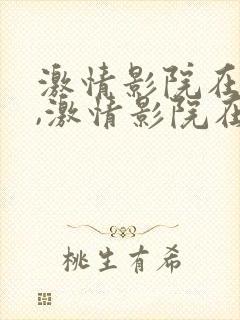 激情影院在
,激情影院在
桃生有希